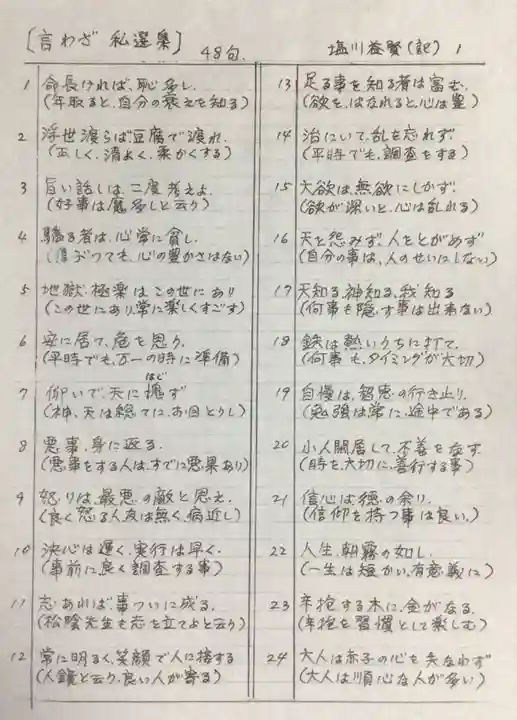 [言わざ 私選集] 48句. 塩川益賢(記) 1
1 命長ければ、恥多し.
(年取ると、自分の衰えを知る)
2 浮世渡らば豆腐で渡れ.
(正しく、清よく、柔かくする)
3 旨い話しは、二度考えよ.
(好事は魔多しと云う)
4 驕る者は、心常に貧し.
(いつも、心の豊かさはない)
5 地獄、極楽は、この世にあり
(この世にあり、常に楽しくすごす)
6 安に居て、危を思う.
(平時でも、万一の時に準備)
7 仰いで、天に愧(はじ)ず
(神、天は総てに、お目とうし)
8 悪事、身に返る.
(悪事をする人は、すでに悪果あり)
9 怒りは、最悪の敵と思え.
(良く怒る人友は無く、病近し)
10 決心は遅く、実行は早く.
(事前に良く調査する事)
11 志あれば事ついに成る.
(松陰先生も志を立てよと云う)
12 常に明るく、笑顔で人に接する
(人鏡と云う、良い人が寄る)
13 足る事を知る者は富む.
(欲を、はなれると、心は豊)
14 治にいて、乱を忘れず
(平時でも、調査をする)
15 大欲は、無欲にしかず.
(欲が深いと、心は乱れる)
16 天を怨みず、人をとがめず
(自分の事は、人のせいにしない)
17 天知る、神知る、我知る
(何事も隠す事は出来ない)
18 鉄は熱いうちに打て.
(何事も、タイミングが大切)
19 自慢は、智恵の行き止り.
(勉強は常に、途中である)
20 小人閑居して、不善を為す.
(時を大切に、善行する事)
21 信心は徳の余り.
(信仰を持つ事は良い.)
22 人生、朝霧の如し.
(一生は短かい、有意義に)
23 辛抱する木に、金がなる.
(辛抱を習慣として楽しむ)
24 大人は赤子の心を失なわず
(大人は順心な人が多い)